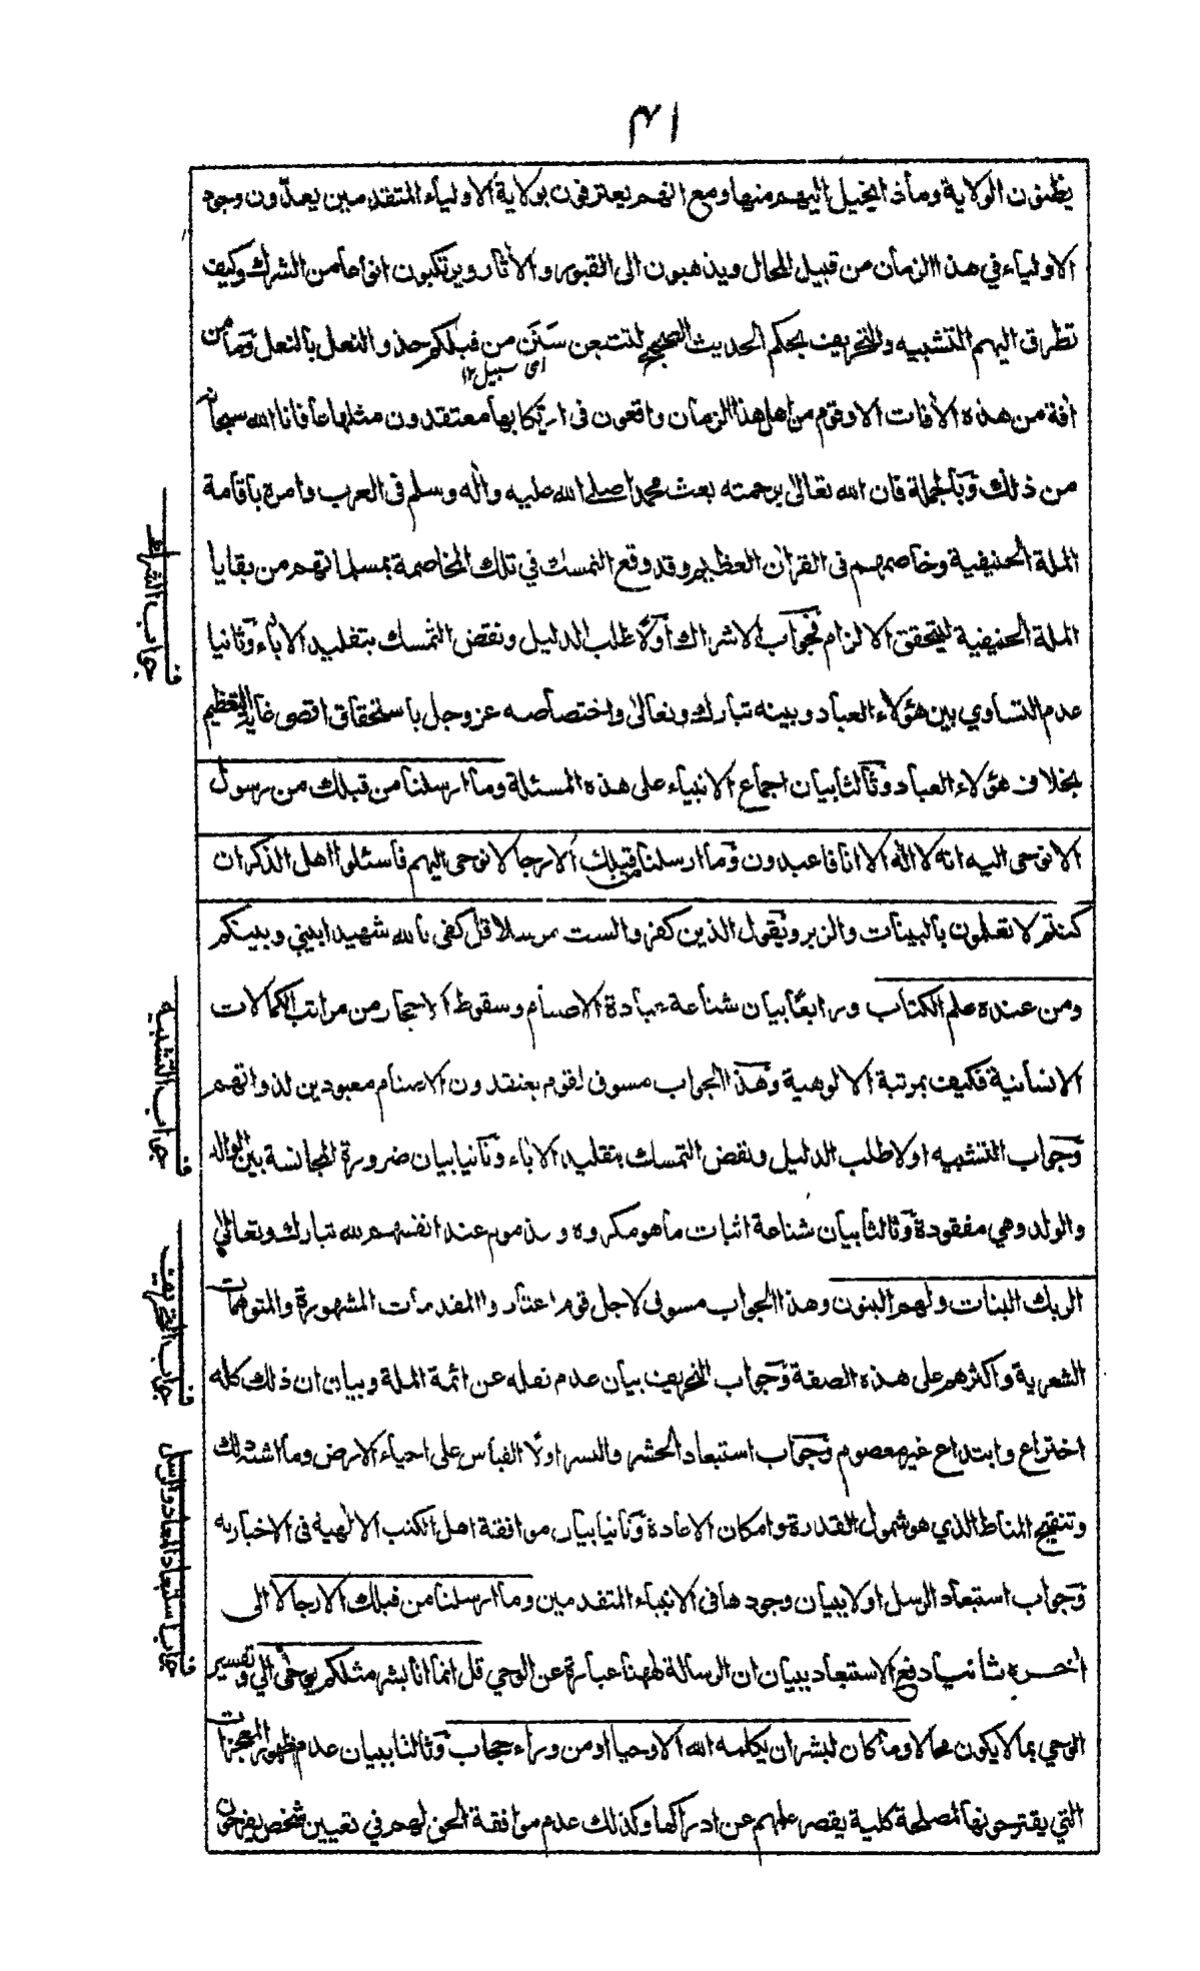 ٤١
يظنون الولاية وماذا يخيل اليهم منها ومع انهم يعترفون بولاية الاولياء المتقدمين يعدّون وجود
الاولياء في هذا الزمان من قبيل المحال ويذهبون الى القبور والأثار ويرتكبون انواعا من الشرك وكيف
تطرق اليهم التشبيه والتحريف بحكم الحديث الصحيح لتتبعن سَنَن من قبلكم حذو النعل بالنعل وما من
اى سبيل ١٢
أفة من هذه الأفات الا وقوم من اهل هذا الزمان واقعون فى ارتكابها معتقدون مثلها عافانا الله سبحانه
من ذلك وبالجملة فان الله تعالى برحمته بعث محمدا صلے الله عليه وأله وسلم فى العرب وامره باقامة
الملة الحنيفية وخاصمهم فى القرأن العظيم وقد وقع التمسك في تلك المخاصمة بمسلماتهم من بقايا
الملة الحنيفية ليتحقق الالزام فجواب الاشراك اولًا طلب الدليل ونقض التمسك بتقليد الأباء وثانيا
عدم التساوي بين هؤلاء العباد وبينه تبارك وتعالى واختصاصه عز وجل باستحقاق اقصى غاية التعظيم
بخلاف هؤلاء العباد وثالثا بيان اجماع الانبياء على هذه المسئلة وما ارسلنا من قبلك من رسول
الا نوحى اليه انه لا اله الا انا فاعبدون وما ارسلنا من قبلك الا رجالا نوحى اليهم فاسئلوا اهل الذكر ان
كنتم لا تعلمون بالبينات والزبر ويقول الذين كفروا لست مرسلا قل كفى بالله شهيدا بيني وبينكم
ومن عنده علم الكتاب ورابعًا بيان شناعة عبادة الاصنام وسقوط الاحجار من مراتب الكمالات
الانسانية فكيف بمرتبة الالوهية وهذا الجواب مسوق لقوم يعتقدون الاصنام معبودين لذواتهم
وجواب التشبيه اولا طلب الدليل ونقض التمسك بتقليد الأباء وثانيا بيان ضرورة المجانسة بين الوالد
والولد وهي مفقودة وثالثا بيان شناعة اثبات ما هو مكروه ومذموم عند انفسهم لله تبارك وتعالى
الربك البنات ولهم البنون وهذا الجواب مسوق لاجل قوم اعتادوا المقدمات المشهورة والمتوهمات
الشعرية واكثرهم على هذه الصفة وجواب التحريف بيان عدم نقله عن ائمة الملة وبيان ان ذلك كله
اختراع وابتداع غير معصوم وجواب استبعاد الحشر والنشر اولًا القياس على احياء الارض وما اشبه ذلك
وتنقيح المناط الذي هو شمول القدرة وامكان الاعادة وثانيا بيان موافقة اهل الكتب الالهية فى الاخبار به
وجواب استبعاد الرسل اولا ببيان وجودها فى الانبياء المتقدمين وما ارسلنا من قبلك الا رجالا الى
اخره ثانيا دفع الاستبعاد ببيان ان الرسالة ههنا عبارة عن الوحي قل انما انا بشر مثلكم يوحى الي وتفسير
الوحي بما لا يكون محالا وما كان لبشر ان يكلمه الله الا وحيا او من وراء حجاب وثالثا ببيان عدم ظهور المعجزات
التي يقترحونها لمصلحة كلية يقصر علمهم عن ادراكها وكذلك عدم موافقة الحق لهم في تعيين شخص يقترحون
ف جواب الشراك
ف جواب التشبيه
ف جواب التحريف
ف جواب استبعاد المعاد والرسل